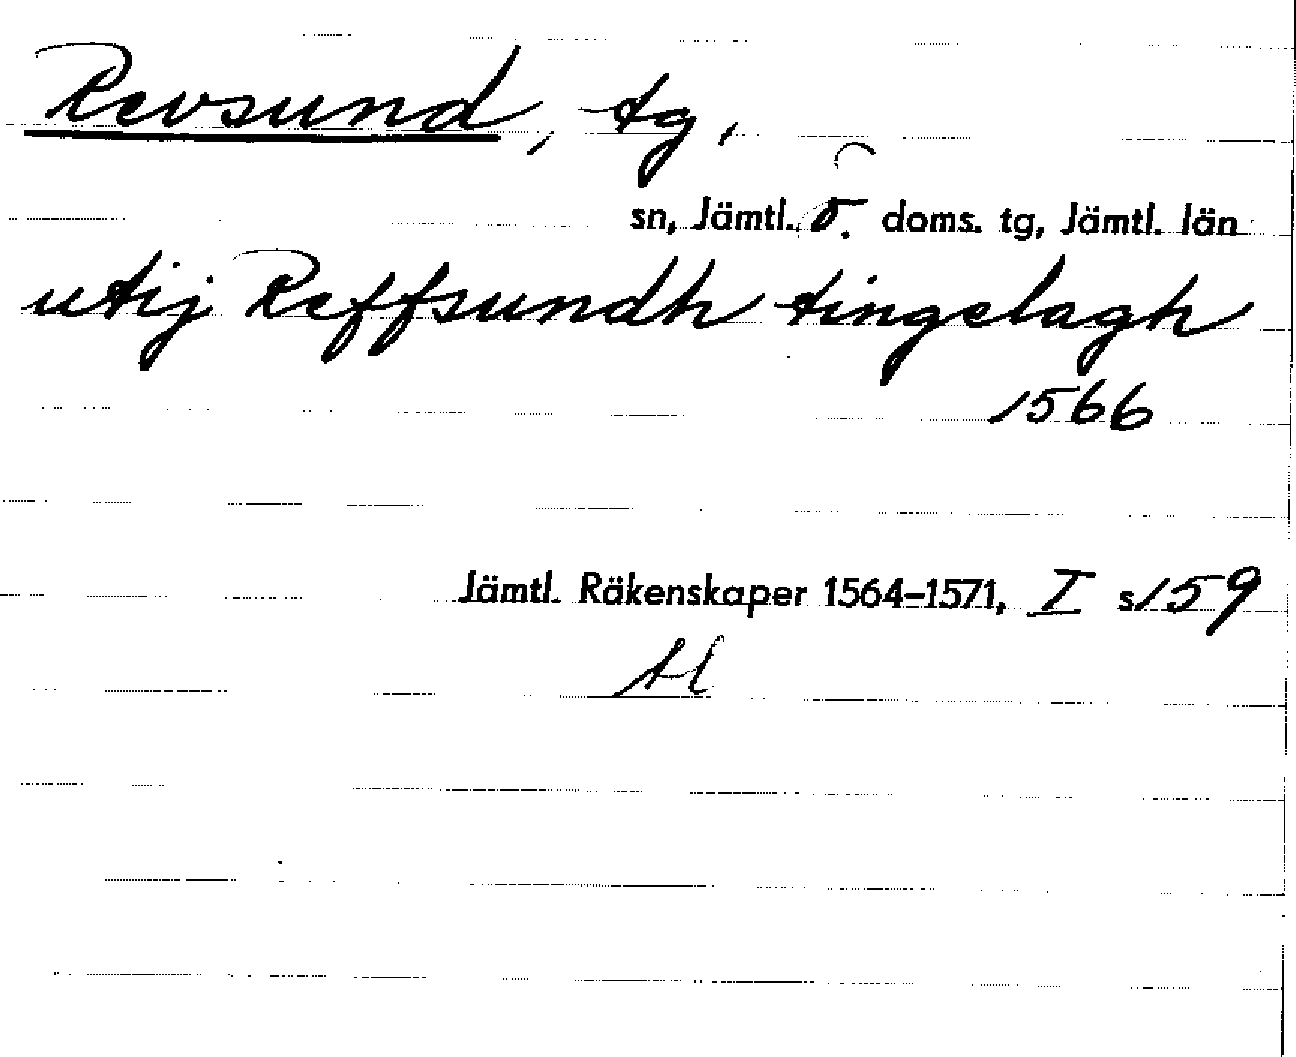 Revsund, tg,
sn, Jämtl. ö. doms. tg, Jämtl. län
utij Reffsundh tingelagh
1566
Jämtl. Räkenskaper 1564–1571, I s 159